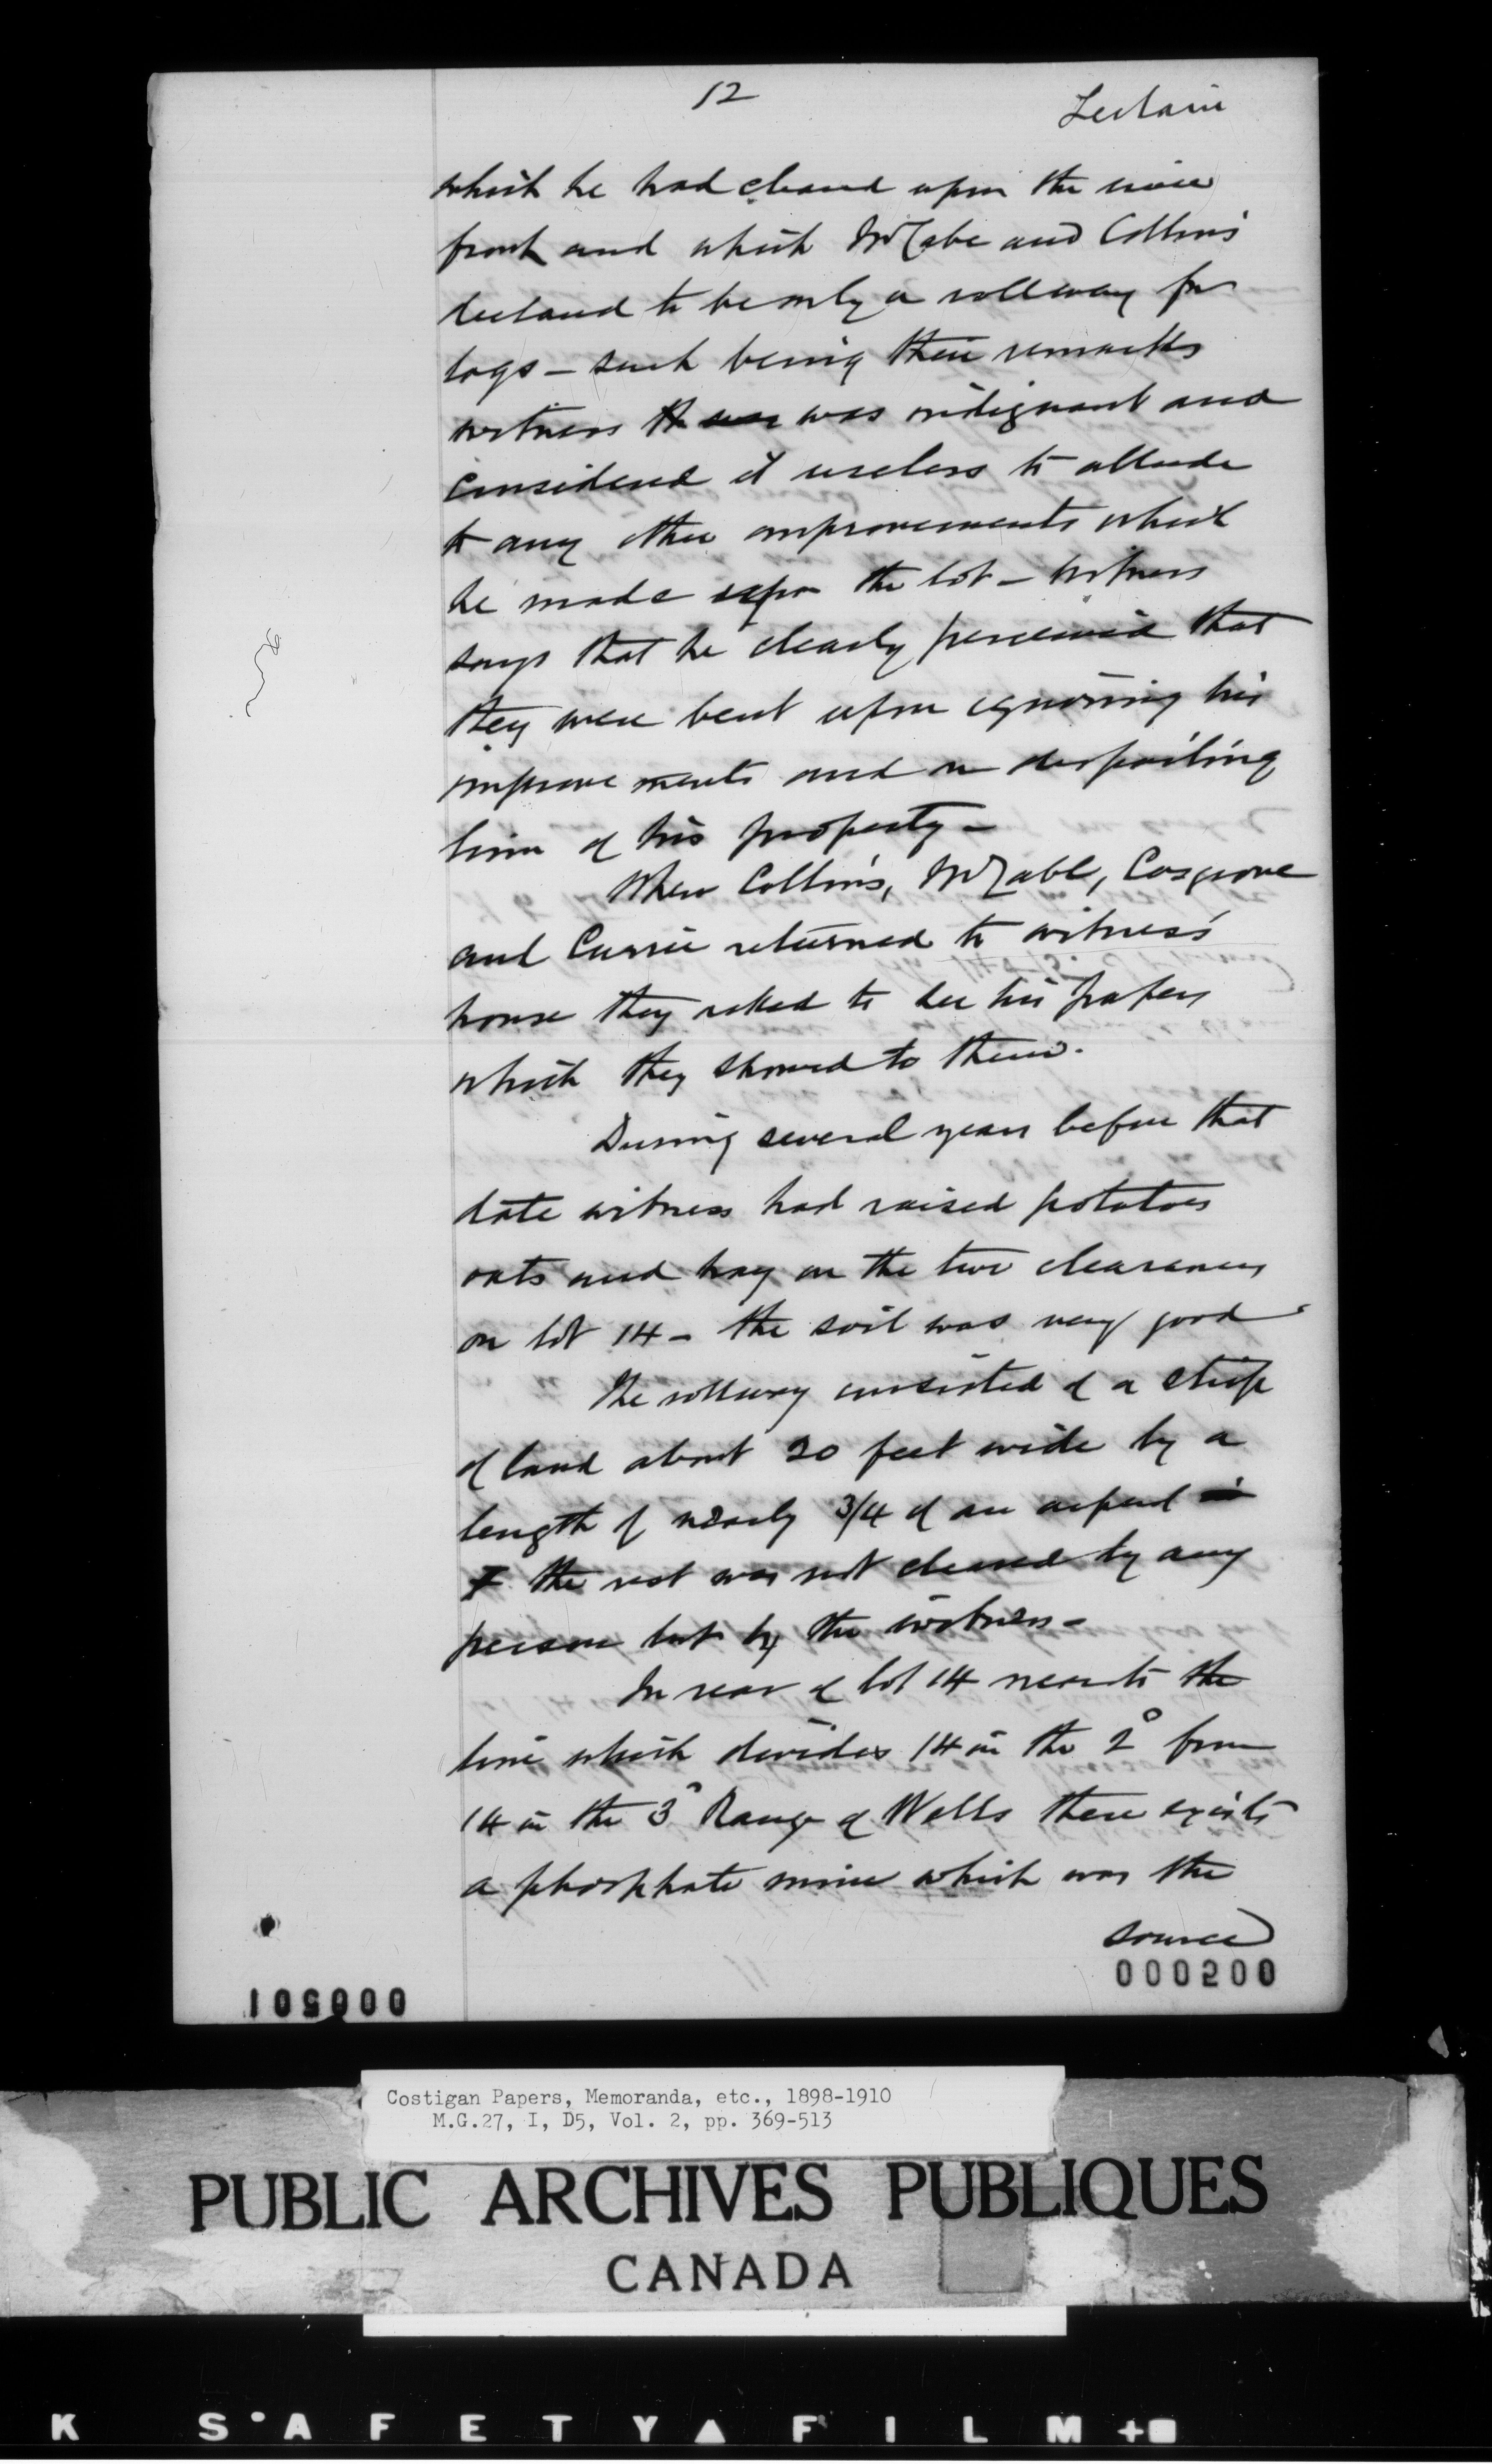 12
Leclair
which he had cleared upon the river
front and which McCabe and Collins
declared to be only a rollway for
logs - such being their remarks
witness was indignant and
considered it useless to allude
to any other improvements which
he made upon the lot - Witness
says that he clearly perceived that
they were bent upon ignoring his
improvements and in despoiling
him of his property -
When Collins, McCabe, Cosgrove
and Currie returned to witness'
house they asked to see his papers
which they showed to them.
During several years before that
date witness had raised potatoes
oats and hay on the two clearances
on lot 14 - the soil was very good
The rollway consisted of a strip
of land about 20 feet wide by a
length of nearly 3/4 of an arpent
the rest was not cleared by any
person but by the witness -
In rear of lot 14 near to the
line which divides 14 in the 2° from
14 in the 3° Range of Wells there exists
a phosphate mine which was the
source
000200
000501
Costigan Papers, Memoranda, etc., 1898-1910
M.G.27, I, D5, Vol. 2, pp. 369-513
PUBLIC ARCHIVES PUBLIQUES
CANADA
K SAFETY FILM